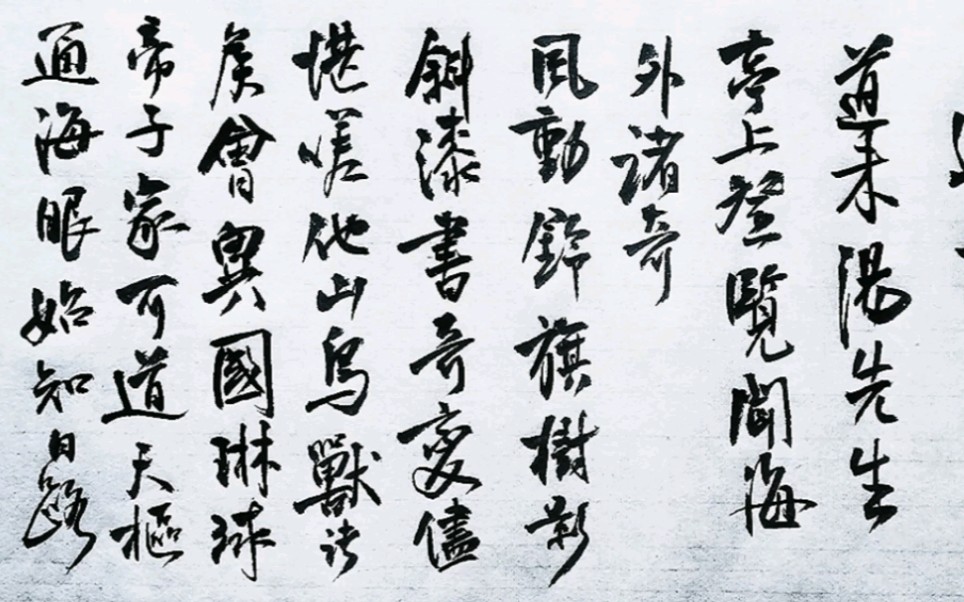 道未湯先生
亭上登覽聞海
外諸奇
風動鈴旗樹影
斜漆書奇變儘
堪嗟他山鳥獸諸
侯會異國琳球
帝子家可道天樞
通海眼始知日路